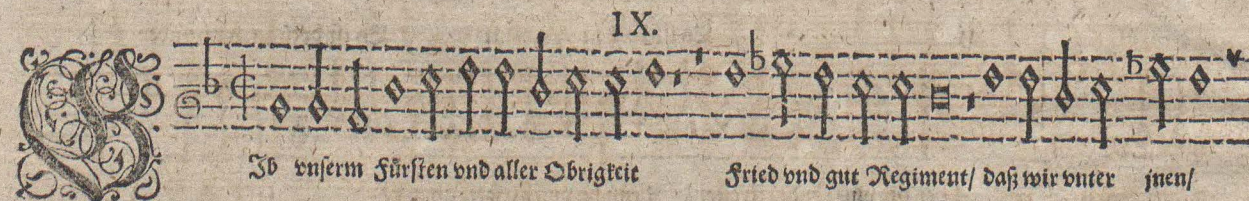 IX.
GIb vnserm Fürsten vnd aller Obrigkeit Fried vnd gut Regiment/ daß wir vnter jnen/